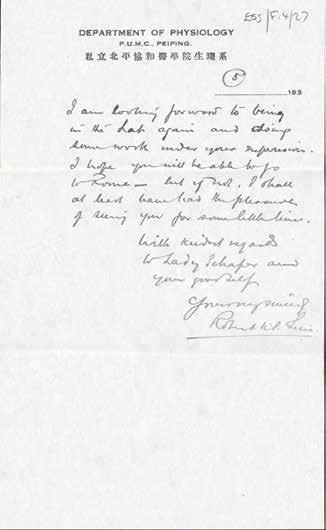 ESS/F.4/27
DEPARTMENT OF PHYSIOLOGY
P.U.M.C., PEIPING.
私立北平協和醫學院生理系
5
193
I am looking forward to being
in the Lab again and doing
some work under your supervision.
I hope you will be able to go
to Rome — but if not, I shall
at least have had the pleasure
of seeing you for some little time.
With kindest regards
to Lady Schafer and
your good self
Yours very sincerely
Robert K.S. Lim.